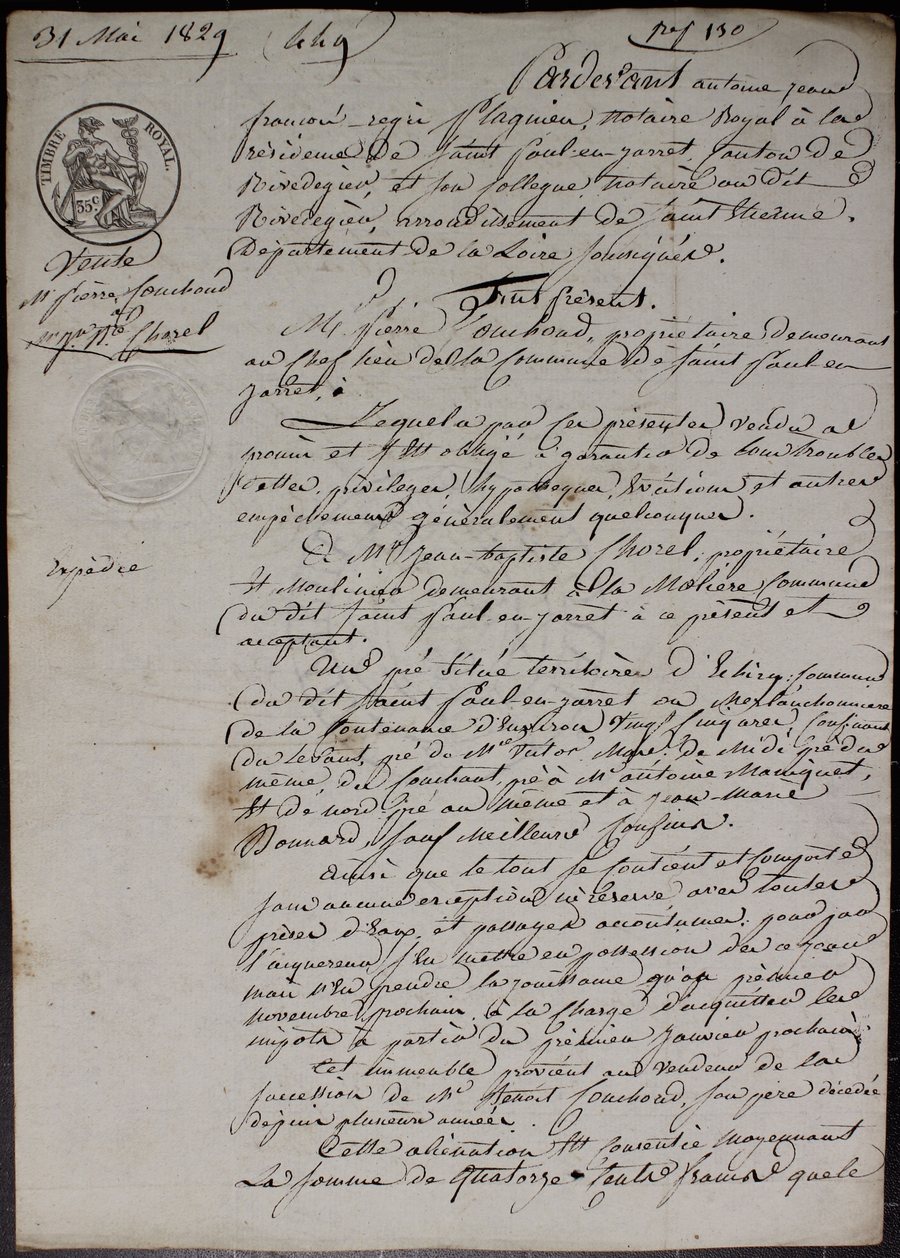 31 Mai 1829
Pardevant antoine jean
françois régis flaquien, notaire Royal à la
Résidence de Saint paul-en-jarret, Canton de
Rivedegier, et son Collegue, notaire au dit
Rivedegier, arrondissement de Saint Etienne,
Département de la Loire soussignés.
TIMBRE ROYAL.
35c
Vente
Mr pierre Couchoud
à
Chorel
Expédié
fut présent.
Mr pierre Couchoud, propriétaire demeurant
au Chef lieu de la Commune de Saint Paul en
jarret,
Lequel a par ces présentes vendu et
promis et s'est obligé à garantir de tous troubles
dettes, priviléges, hypotheques, Evictions et autres
empêchements généralement quelconques.
à Mr Jean-baptiste Chorel, propriétaire
Et Moulinier demeurant à la Molière Commune
du dit Saint paul-en-jarret à ce présent et
acceptant.
Un pré Situé territoire d' commune
du dit Saint Paul-en-jarret ou
de la Contenance d'Environ Vingt Cinq ares, Confinant
du levant, pré de Mr de Midi pré du
même, du Couchant, pré à Mr antoine Maniquet,
Et de nord pré au même et à Jean-Marie
Bonnard, sauf meilleurs Confins.
ainsi que le tout se Contient et Comporte
sans aucune exception ni réserve, avec toutes
prises d'Eaux et passages accoutumés, pour par
l'acquereur s'En mettre en possession dès ce jour
mais n'En prendre la jouissance qu'au premier
novembre prochain, à la Charge d'acquitter les
impots à partir du premier Janvier prochain.
Cet immeuble provient au vendeur de la
succession de Mr Benoit Couchoud, son père décédé
depuis plusieurs années.
Cette aliénation Est Consentie Moyennant
La somme de Quatorze Cents francs que le